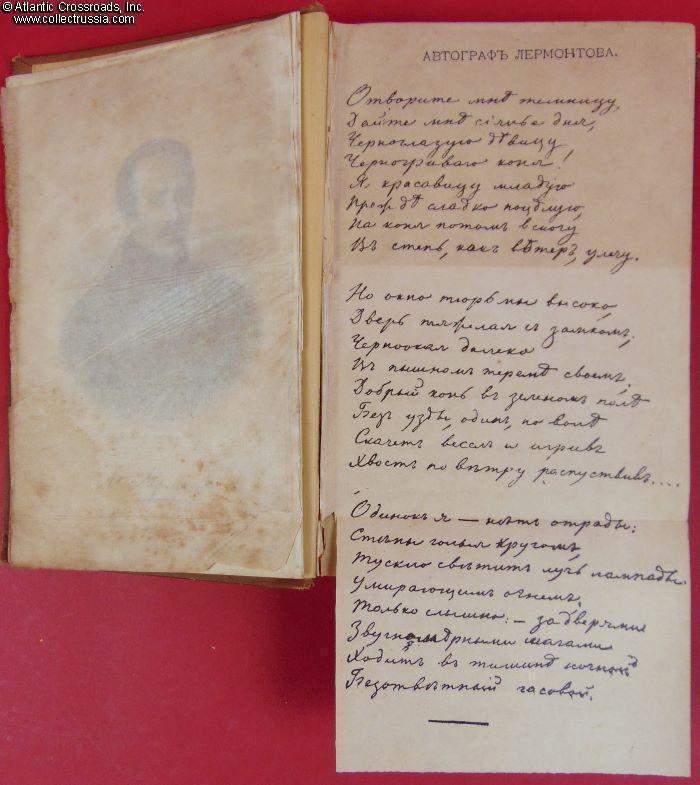 © Atlantic Crossroads, Inc.
www.collectrussia.com
АВТОГРАФЪ ЛЕРМОНТОВА.
Отворите мнѣ темницу,
Дайте мнѣ сіянье дня,
Черноглазую дѣвицу,
Черногриваго коня!
Я красавицу младую
Прежде сладко поцѣлую,
На коня потомъ вскочу
Въ степь, какъ вѣтеръ, улечу.
Но окно тюрьмы высоко,
Дверь тяжелая съ замкомъ;
Черноокая далеко
Въ пышномъ теремѣ своемъ;
Добрый конь въ зеленомъ полѣ
Безъ узды, одинъ, по волѣ
Скачетъ веселъ и игривъ
Хвостъ по вѣтру распустивъ....
Одинокъ я — нѣтъ отрады:
Стѣны голыя кругомъ,
Тускло свѣтитъ лучъ лампады
Умирающимъ огнемъ.
Только слышно: — за дверями
Звучномѣрными шагами
Ходитъ въ тишинѣ ночной
Безотвѣтный часовой.